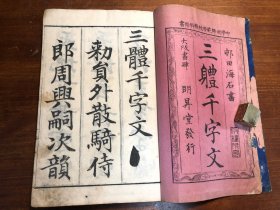 邨田海石書
三體千字文
大阪書肆 明昇堂發行
三體千字文
勅員外散騎侍
郎周興嗣次韻